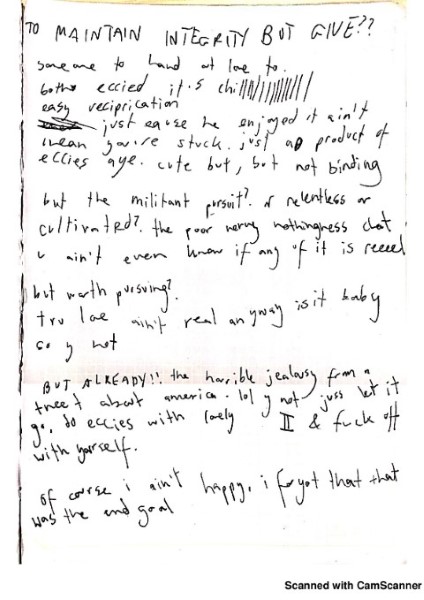 TO MAINTAIN INTEGRITY BUT GIVE??
someone to hand at love to.
both eccied it.s chillllllllllll
easy reciprication
just cause he enjoyed it ain't
mean you're stuck. just a product of
eccies aye. cute but, but not binding
but the militant pursuit? or relentless or
cultivated? the poor nervy nothingness chat
u ain't even know if any of it is reeeel
but worth pursuing?
tru love ain't real anyway is it baby
so y not
BUT ALREADY!! the horrible jealousy from a
tweet about america. lol y not juss let it
go, do eccies with lovely II & fuck off
with yourself.
of course i ain't happy, i forgot that that
was the end goal
Scanned with CamScanner